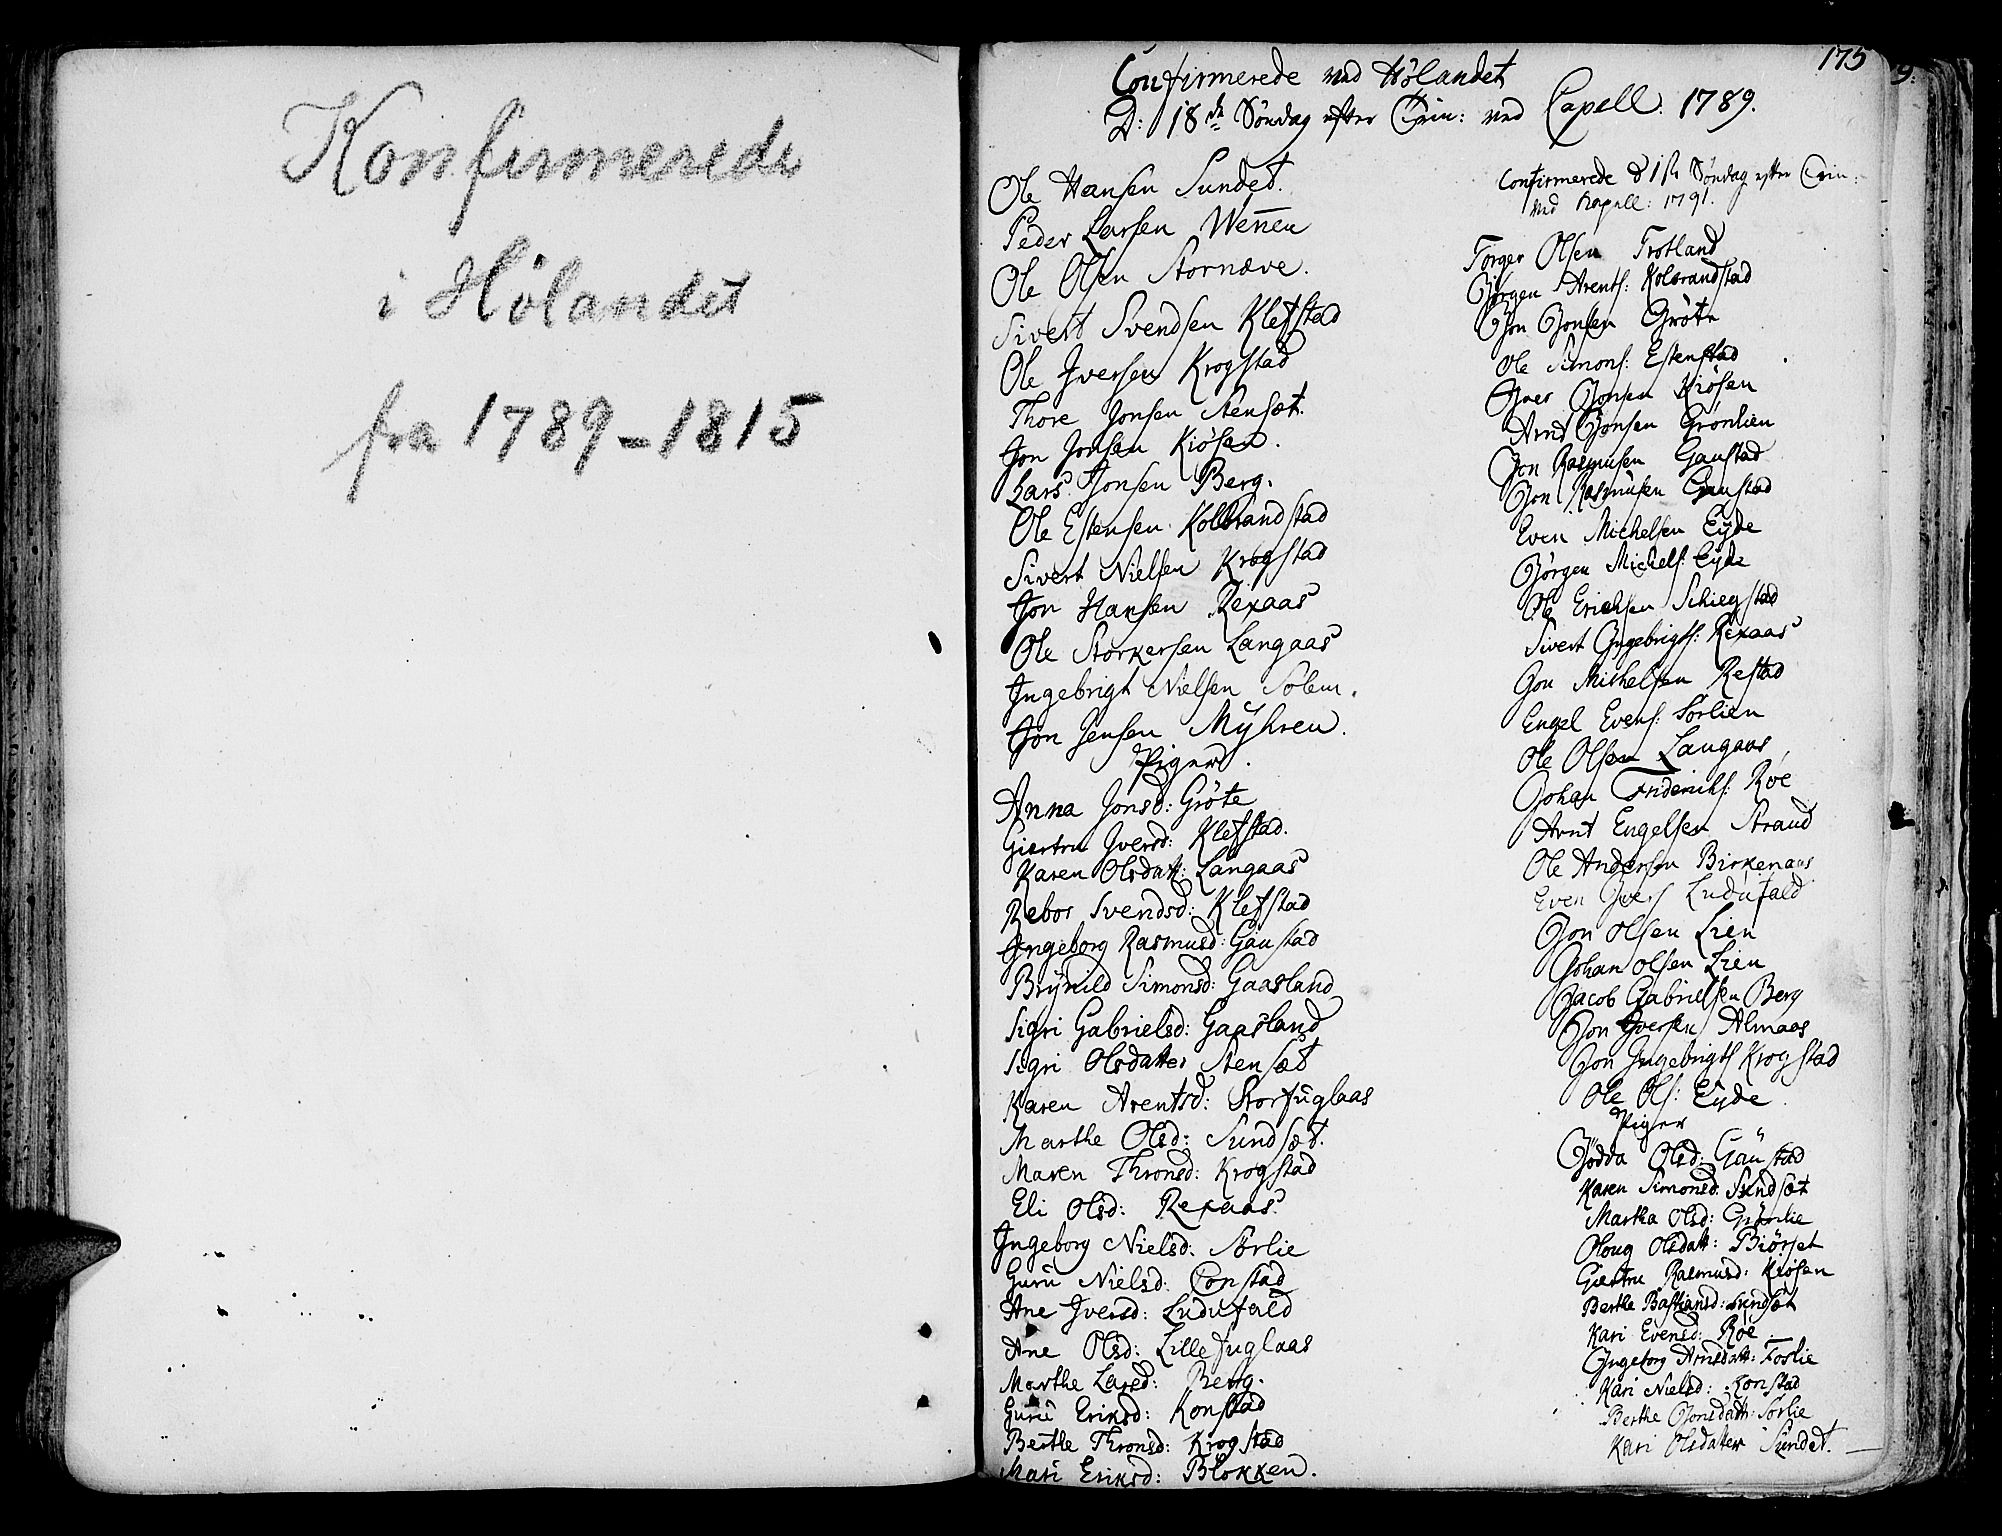 Konfirmerede
i Hølandet
fra 1789-1815
175
Confirmerede ved Hølandet
D: 18de Söndag efter Trin: ved Capell: 1789.
Ole Hansen Sundet.
Peder Larsen Wennen
Ole Olsen Stornæve.
Sivert Svendsen Klefstad
Ole Iversen Krogstad
Thore Jonsen Stensæt.
Jon Jonsen Kiösen.
Lars Jonsen Berg.
Ole Estensen Kolbrandstad
Sivert Nielsen Krogstad
Jon Hansen Rexaas
Ole Storkersen Langaas
Ingebrigt Nielsen Solem.
Jon Jensen Mÿhren.
Piger.
Anna Jonsd: Gröte
Giertru Iversd: Klefstad.
Karen Olsdatt: Langaas
Rebor Svendsd: Klefstad
Ingeborg Rasmusd: Gaustad
Brÿnild Simonsd: Gaasland
Sigri Gabrielsd: Gaasland
Sigri Olsdatter Stensæt
Karen Arentsd: Storfuglaas
Marthe Olsd: Sundsæt.
Maren Thronsd: Krogstad
Eli Olsd: Rexaas.
Ingeborg Nielsd: Sörlie
Guru Nielsd: Constad
Ane Iversd: Ludufald
Ane Olsd: Lillefuglaas
Marthe Larsd: Berg.
Guru Eriksd: Konstad
Berthe Thronsd: Krogstad
Mari Eriksd: Blokken.
Confirmerede d 1ste Söndag efter Trin:
ved Kapell: 1791.
Torger Olsen Trotland
Jörgen Arents: Kolbrandstad
Jon Jonsen Gröte
Ole Simons: Estenstad
Iver Jonsen Kiösen
Arnt Jonsen Grönlien
Jon Rasmusen Gaustad
Jon Rasmusen Gaustad
Even Michelsen Eÿde
Jörgen Michels: Eÿde
Ole Erichsen Schiegstad
Sivert Ingebrigts: Rexaas
Jon Michelsen Restad
Engel Evens: Sörlien
Ole Olsen Langaas
Johan Friderichs: Röe
Arnt Engelsen Strand
Ole Andersen Birkenaas
Even Ivers Ludufald
Jon Olsen Lien
Johan Olsen Lien
Jacob Gabrielsen Berg
Jon Iversen Almaas
Jon Ingebrigts Krogstad
Ole Ols: Eÿde
Piger
Gödda Olsd: Gaustad
Karen Simonsd: Sundsæt
Martha Olsd: Grönlie
Oloug Olsdatt: Biörset
Giertru Rasmusd: Kiösen
Berthe Bastiansd: Sundsæt
Kari Evensd: Röe
Ingeborg Arnsdatt: Foslie
Kari Nielsd: Konstad
Berthe Jonsdatt: Sörlie
Kari Olsdatter Sundet.